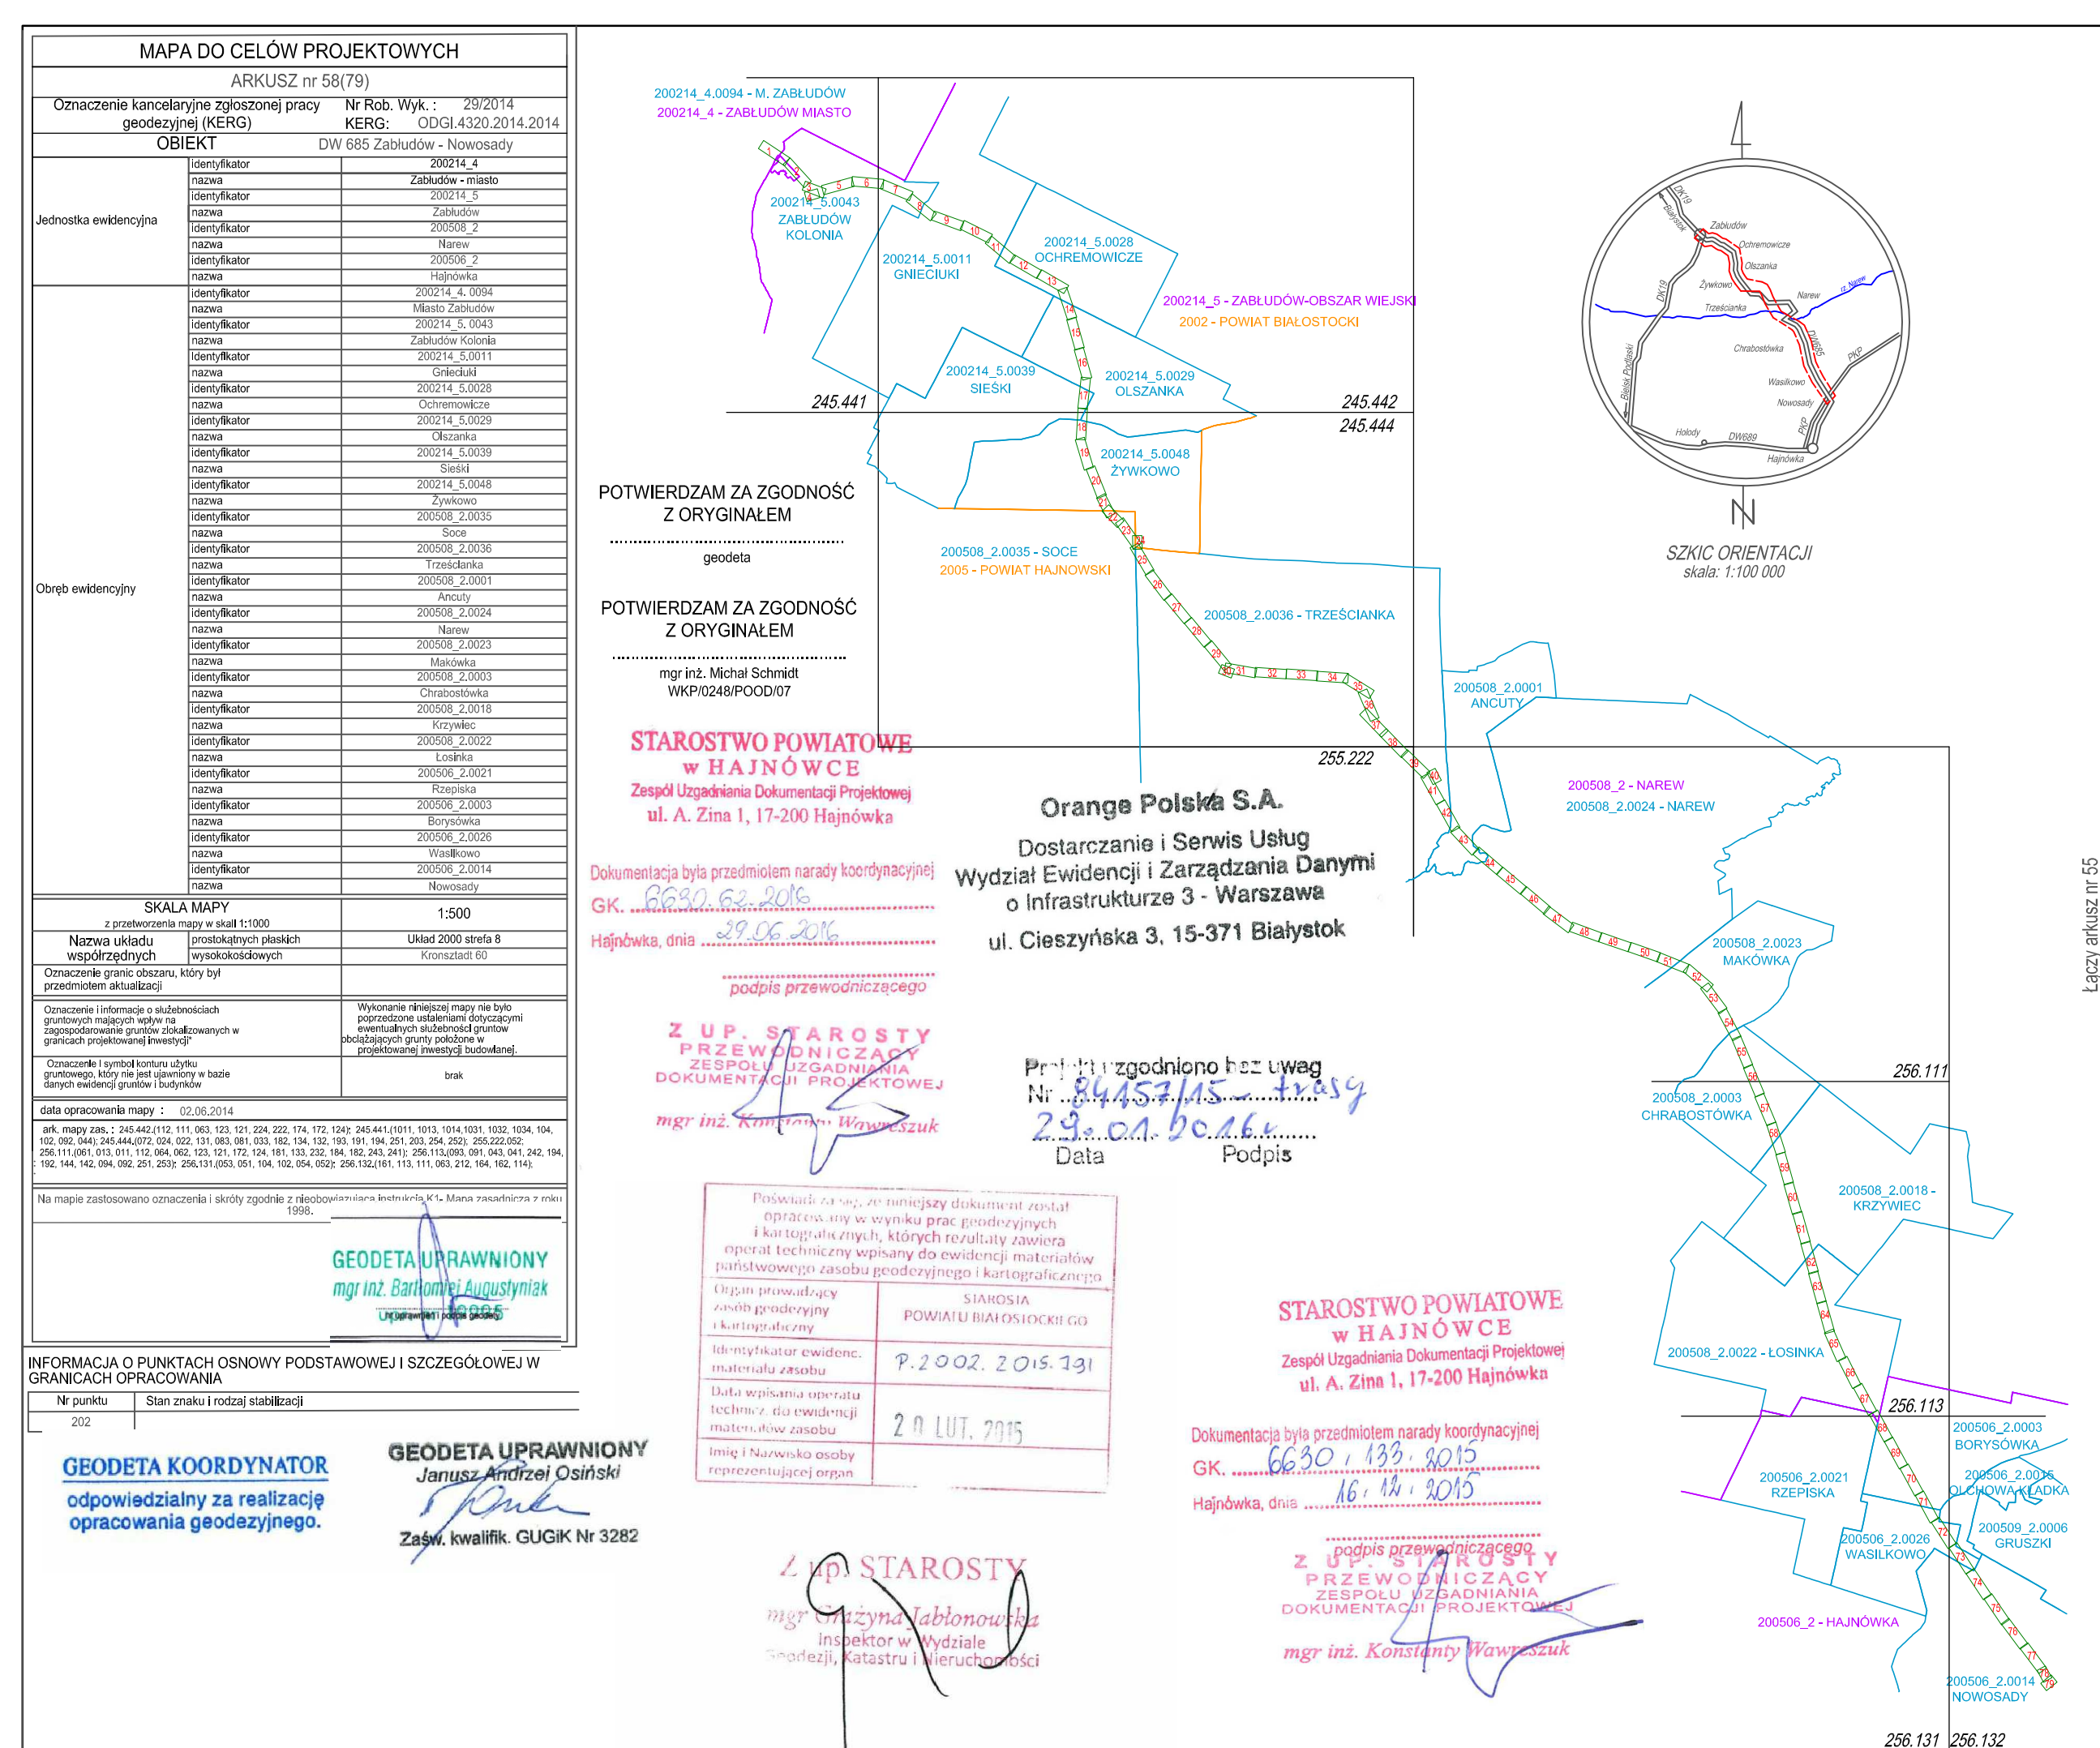 MAPA DO CELÓW PROJEKTOWYCH
ARKUSZ nr 58(79)
Oznaczenie kancelaryjne zgłoszonej pracy geodezyjnej (KERG)
Nr Rob. Wyk. : 29/2014
KERG: ODGI.4320.2014.2014
OBIEKT DW 685 Zabłudów - Nowosady
Jednostka ewidencyjna
identyfikator 200214_4
nazwa Zabłudów - miasto
identyfikator 200214_5
nazwa Zabłudów
identyfikator 200508_2
nazwa Narew
identyfikator 200506_2
nazwa Hajnówka
Obręb ewidencyjny
identyfikator 200214_4. 0094
nazwa Miasto Zabłudów
identyfikator 200214_5. 0043
nazwa Zabłudów Kolonia
identyfikator 200214_5.0011
nazwa Gnieciuki
identyfikator 200214_5.0028
nazwa Ochremowicze
identyfikator 200214_5.0029
nazwa Olszanka
identyfikator 200214_5.0039
nazwa Sieśki
identyfikator 200214_5.0048
nazwa Żywkowo
identyfikator 200508_2.0035
nazwa Soce
identyfikator 200508_2.0036
nazwa Trześcianka
identyfikator 200508_2.0001
nazwa Ancuty
identyfikator 200508_2.0024
nazwa Narew
identyfikator 200508_2.0023
nazwa Makówka
identyfikator 200508_2.0003
nazwa Chrabostówka
identyfikator 200508_2.0018
nazwa Krzywiec
identyfikator 200508_2.0022
nazwa Łosinka
identyfikator 200506_2.0021
nazwa Rzepiska
identyfikator 200506_2.0003
nazwa Borysówka
identyfikator 200506_2.0026
nazwa Wasilkowo
identyfikator 200506_2.0014
nazwa Nowosady
SKALA MAPY
z przetworzenia mapy w skali 1:1000
1:500
Nazwa układu współrzędnych
prostokątnych płaskich Układ 2000 strefa 8
wysokokościowych Kronsztadt 60
Oznaczenie granic obszaru, który był
przedmiotem aktualizacji
Oznaczenie i informacje o służebnościach
gruntowych mających wpływ na
zagospodarowanie gruntów zlokalizowanych w
granicach projektowanej inwestycji*
Wykonanie niniejszej mapy nie było
poprzedzone ustaleniami dotyczącymi
ewentualnych służebności gruntow
obciążających grunty położone w
projektowanej inwestycji budowlanej.
Oznaczenie i symbol konturu użytku
gruntowego, który nie jest ujawniony w bazie
danych ewidencji gruntów i budynków
brak
data opracowania mapy : 02.06.2014
ark. mapy zas. : 245.442.(112, 111, 063, 123, 121, 224, 222, 174, 172, 124); 245.441.(1011, 1013, 1014,1031, 1032, 1034, 104,
102, 092, 044); 245.444.(072, 024, 022, 131, 083, 081, 033, 182, 134, 132, 193, 191, 194, 251, 203, 254, 252); 255.222.052;
256.111.(061, 013, 011, 112, 064, 062, 123, 121, 172, 124, 181, 133, 232, 184, 182, 243, 241); 256.113.(093, 091, 043, 041, 242, 194,
192, 144, 142, 094, 092, 251, 253); 256.131.(053, 051, 104, 102, 054, 052); 256.132.(161, 113, 111, 063, 212, 164, 162, 114);
Na mapie zastosowano oznaczenia i skróty zgodnie z nieobowiązującą instrukcją K1- Mapa zasadnicza z roku
1998.
GEODETA UPRAWNIONY
mgr inż. Bartłomiej Augustyniak
nr uprawnień i podpis geodety
INFORMACJA O PUNKTACH OSNOWY PODSTAWOWEJ I SZCZEGÓŁOWEJ W
GRANICACH OPRACOWANIA
Nr punktu Stan znaku i rodzaj stabilizacji
202
GEODETA KOORDYNATOR
odpowiedzialny za realizację
opracowania geodezyjnego.
GEODETA UPRAWNIONY
Janusz Andrzej Osiński
Zaśw. kwalifik. GUGiK Nr 3282
POTWIERDZAM ZA ZGODNOŚĆ
Z ORYGINAŁEM
geodeta
POTWIERDZAM ZA ZGODNOŚĆ
Z ORYGINAŁEM
mgr inż. Michał Schmidt
WKP/0248/POOD/07
STAROSTWO POWIATOWE
w HAJNÓWCE
Zespół Uzgadniania Dokumentacji Projektowej
ul. A. Zina 1, 17-200 Hajnówka
Dokumentacja była przedmiotem narady koordynacyjnej
GK. 6630.62.2016
Hajnówka, dnia 29.06.2016
podpis przewodniczącego
Z UP. STAROSTY
PRZEWODNICZĄCY
ZESPOŁU UZGADNIANIA
DOKUMENTACJI PROJEKTOWEJ
mgr inż. Konstanty Wawreszuk
Orange Polska S.A.
Dostarczanie i Serwis Usług
Wydział Ewidencji i Zarządzania Danymi
o Infrastrukturze 3 - Warszawa
ul. Cieszyńska 3, 15-371 Białystok
Projekt uzgodniono bez uwag
Nr 84157/15 - trasy
29.01.2016r
Data Podpis
Poświadcza się, że niniejszy dokument został
opracowany w wyniku prac geodezyjnych
i kartograficznych, których rezultaty zawiera
operat techniczny wpisany do ewidencji materiałów
państwowego zasobu geodezyjnego i kartograficznego
Organ prowadzący
zasób geodezyjny
i kartograficzny
STAROSTA
POWIATU BIAŁOSTOCKIEGO
Identyfikator ewidenc.
materiału zasobu
P.2002.2015.791
Data wpisania operatu
technicz. do ewidencji
materiałów zasobu
20 LUT. 2015
Imię i Nazwisko osoby
reprezentującej organ
Z up. STAROSTY
mgr Grażyna Jabłonowska
Inspektor w Wydziale
Geodezji, Katastru i Nieruchomości
STAROSTWO POWIATOWE
w HAJNÓWCE
Zespół Uzgadniania Dokumentacji Projektowej
ul. A. Zina 1, 17-200 Hajnówka
Dokumentacja była przedmiotem narady koordynacyjnej
GK. 6630.133.2015
Hajnówka, dnia 16.12.2015
podpis przewodniczącego
Z UP. STAROSTY
PRZEWODNICZĄCY
ZESPOŁU UZGADNIANIA
DOKUMENTACJI PROJEKTOWEJ
mgr inż. Konstanty Wawreszuk
200214_4.0094 - M. ZABŁUDÓW
200214_4 - ZABŁUDÓW MIASTO
200214_5.0043
ZABŁUDÓW
KOLONIA
200214_5.0011
GNIECIUKI
200214_5.0028
OCHREMOWICZE
200214_5 - ZABŁUDÓW-OBSZAR WIEJSKI
2002 - POWIAT BIAŁOSTOCKI
200214_5.0039
SIEŚKI
200214_5.0029
OLSZANKA
245.441
245.442
245.444
200214_5.0048
ŻYWKOWO
200508_2.0035 - SOCE
2005 - POWIAT HAJNOWSKI
200508_2.0036 - TRZEŚCIANKA
255.222
200508_2.0001
ANCUTY
200508_2 - NAREW
200508_2.0024 - NAREW
200508_2.0023
MAKÓWKA
256.111
200508_2.0003
CHRABOSTÓWKA
200508_2.0018 -
KRZYWIEC
200508_2.0022 - ŁOSINKA
256.113
200506_2.0003
BORYSÓWKA
200506_2.0021
RZEPISKA
200506_2.0015
OLCHOWA KŁADKA
200506_2.0026
WASILKOWO
200509_2.0006
GRUSZKI
200506_2 - HAJNÓWKA
200506_2.0014
NOWOSADY
256.131
256.132
1 2 3 4 5 6 7 8 9 10 11 12 13 14 15 16 17 18 19 20 21 22 23 24 25 26 27 28 29 30 31 32 33 34 35 36 37 38 39 40 41 42 43 44 45 46 47 48 49 50 51 52 53 54 55 56 57 58 59 60 61 62 63 64 65 66 67 68 69 70 71 72 73 74 75 76 77 78 79
DK19
Białystok
Zabłudów
Ochremowicze
Olszanka
Żywkowo
Narew
rz. Narew
Trześcianka
DK19
Chrabostówka
DW685
PKP
Wasilkowo
Nowosady
Bielsk Podlaski
Hołody
DW689
PKP
Hajnówka
N
SZKIC ORIENTACJI
skala: 1:100 000
Łączy arkusz nr 55